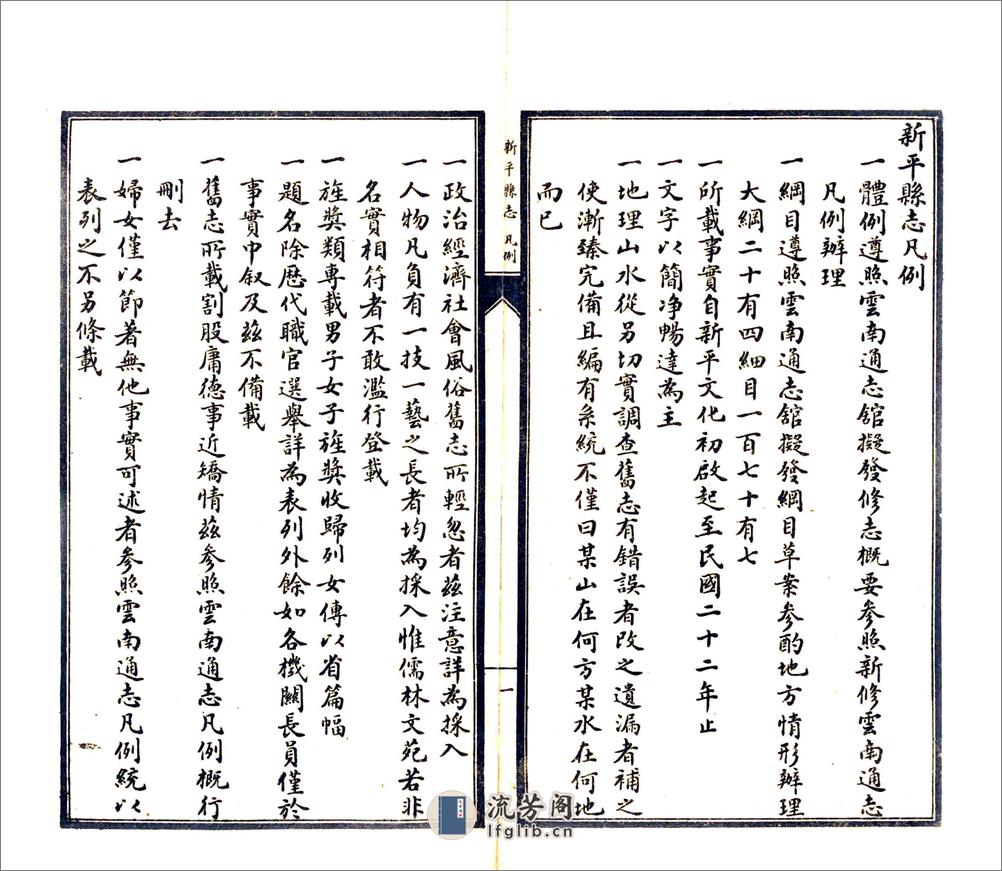 新平縣志凡例
一體例遵照雲南通志館擬發修志概要參照新修雲南通志
凡例辦理
一綱目遵照雲南通志館擬發綱目草案參酌地方情形辦理
大綱二十有四細目一百七十有七
一所載事實自新平文化初啟起至民國二十二年止
一文字以簡净暢達為主
一地理山水從另切實調查舊志有錯誤者改之遺漏者補之
使漸臻完備且編有系統不僅曰某山在何方某水在何地
而已
新平縣志 凡例
一
一政治經濟社會風俗舊志所輕忽者茲注意詳為採入
一人物凡負有一技一藝之長者均為採入惟儒林文苑若非
名實相符者不敢濫行登載
一旌獎類專載男子女子旌獎收歸列女傳以省篇幅
一題名除歷代職官選舉詳為表列外餘如各機關長員僅於
事實中叙及茲不備載
一舊志所載割股庸德事近矯情茲參照雲南通志凡例概行
刪去
一婦女僅以節著無他事實可述者參照雲南通志凡例統以
表列之不另條載
流芳阁
lfglib.cn